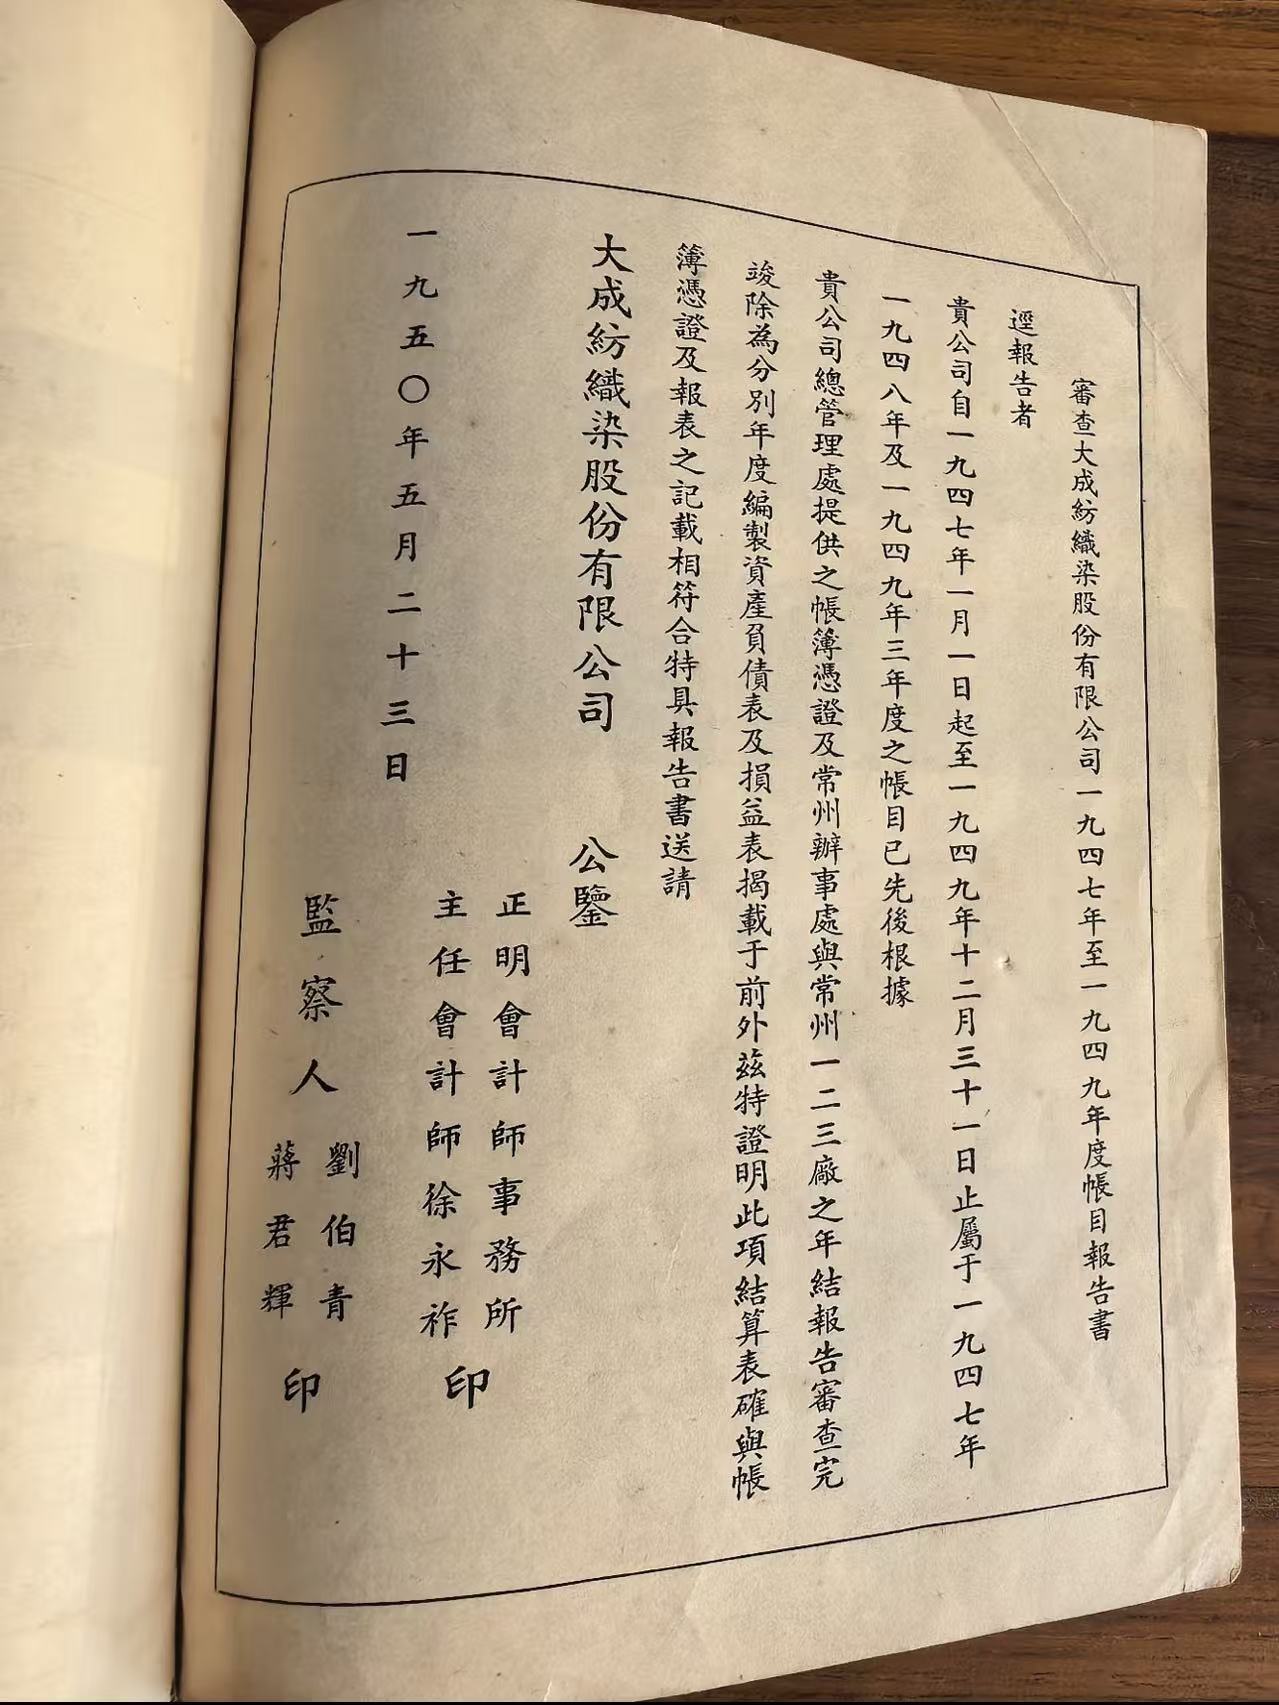 審查大成紡織染股份有限公司一九四七年至一九四九年度帳目報告書
逕報告者
貴公司自一九四七年一月一日起至一九四九年十二月三十一日止屬于一九四七年
一九四八年及一九四九年三年度之帳目已先後根據
貴公司總管理處提供之帳簿憑證及常州辦事處與常州一二三廠之年結報告審查完
竣除為分別年度編製資產負債表及損益表揭載于前外茲特證明此項結算表確與帳
簿憑證及報表之記載相符合特具報告書送請
大成紡織染股份有限公司 公鑒
正明會計師事務所
主任會計師徐永祚 印
一九五〇年五月二十三日
監察人 劉伯青
蔣君輝 印